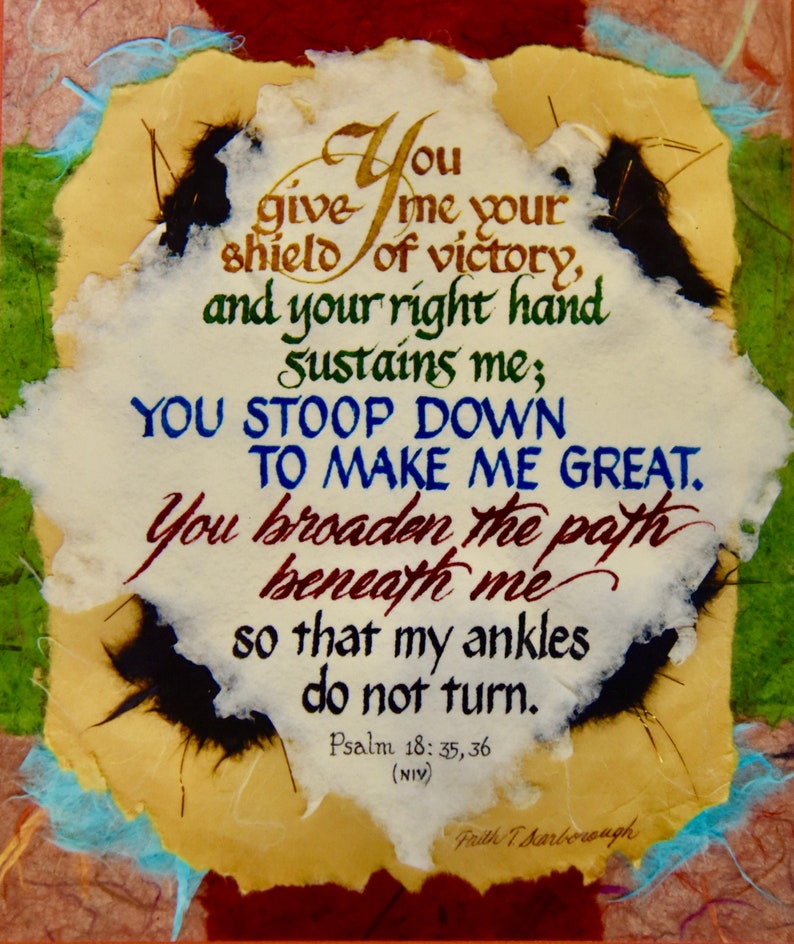 You
give me your
shield of victory,
and your right hand
sustains me;
YOU STOOP DOWN
TO MAKE ME GREAT.
You broaden the path
beneath me
so that my ankles
do not turn.
Psalm 18:35,36
(NIV)
Faith T. Scarborough